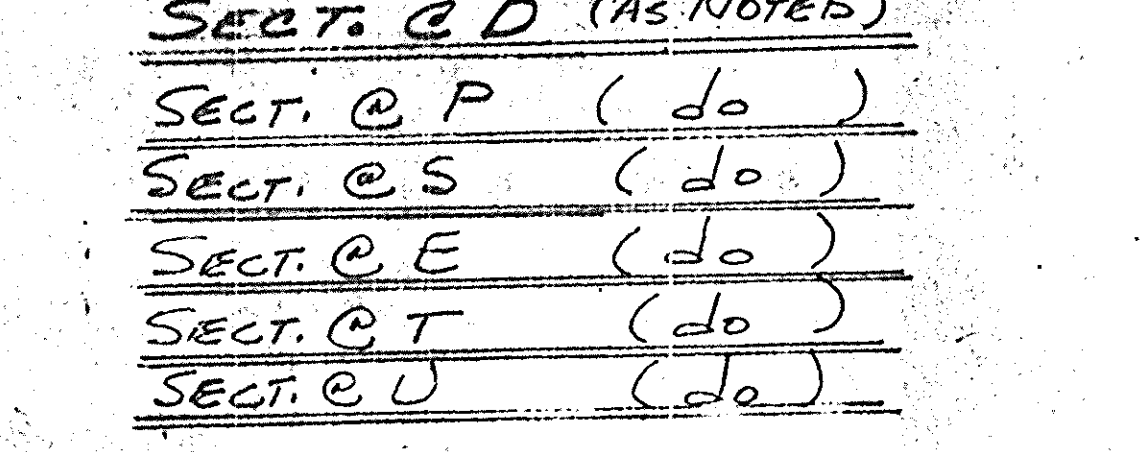 SECT. @ D (AS NOTED)
SECT. @ P (do)
SECT. @ S (do)
SECT. @ E (do)
SECT. @ T (do)
SECT. @ U (do)